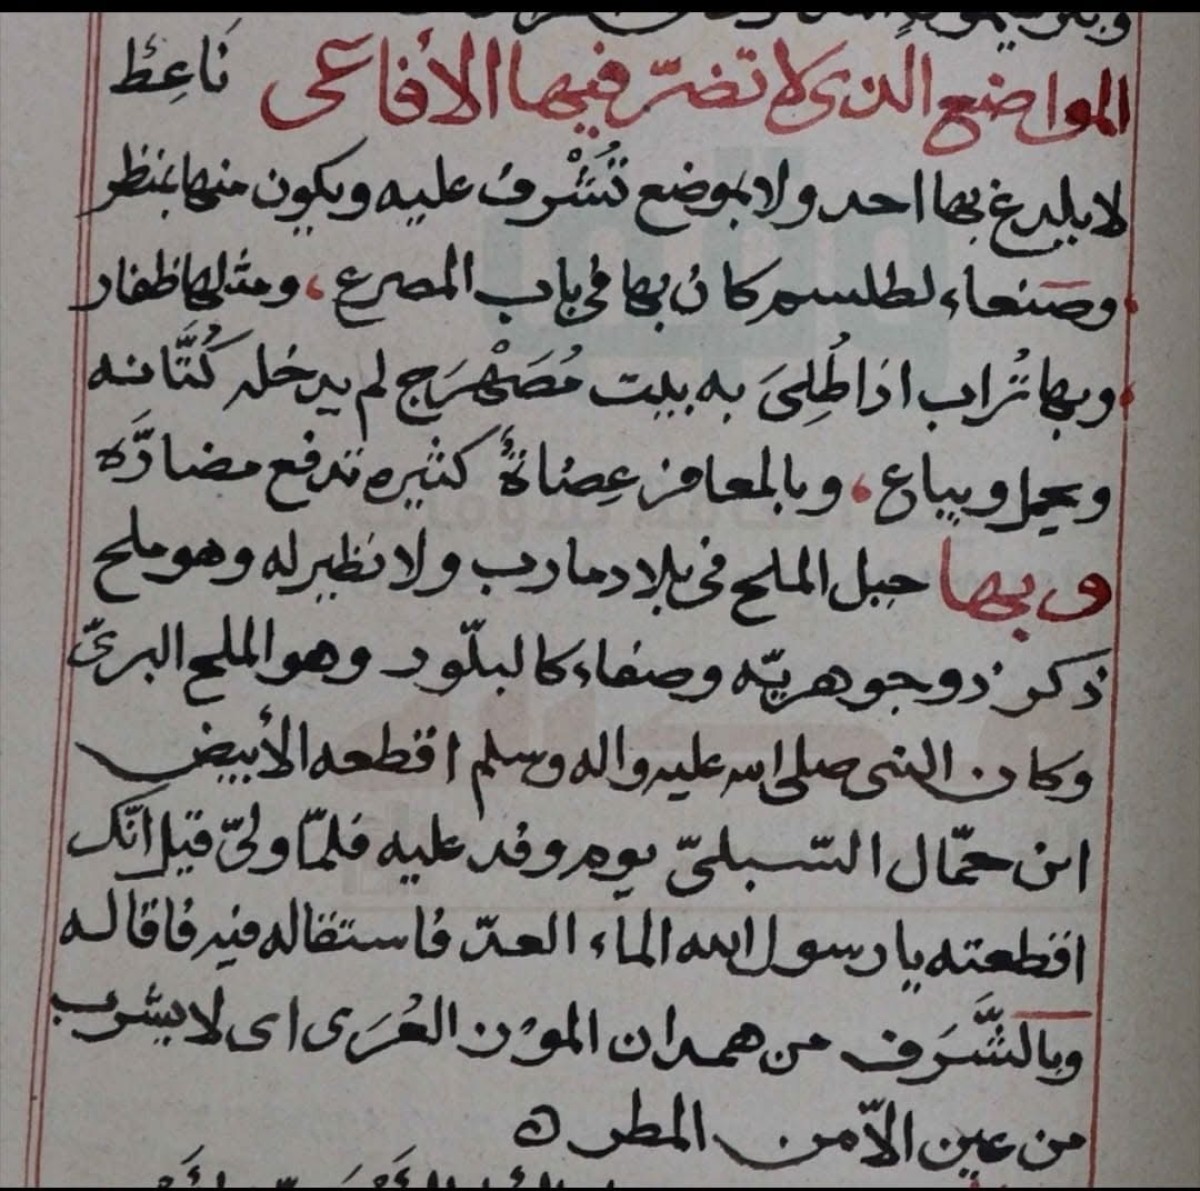 المواضع الذى لا تضرّ فيها الأفاعى نَاعِط
لا يلدغ بها احد ولا بموضع تُشْرفُ عليه ويكون منها بمنظر
وصنعاء لطلسم كانُ بها فى باب المصرع، ومثلها ظفار
وبها تُراب اذا طُلِىَ به بيت مُصَهْرَج لم يدخله كُتَّانه
ويحمل ويباع، وبالمعافر عِصَاةٌ كثيره تدفع مضادَّه
وبها جبل الملح فى بلاد مارب ولا نظير له وهو ملح
ذكر ذو جوهريّه وصفاء كالبلّور وهو الملح البرىّ
وكان النبى صلى الله عليه واله وسلم اقطعه الأبيض
ابن حمّال السّبلىّ يوم وفد عليه فلمّا ولىّ قيل انّك
اقطعته يا رسول الله الماء العدّ فاستقاله فيه فاقاله
وبالشَّرَف من همدان الموْن العُرَى اى لا يشرب
من عين الاّ من المطر ه